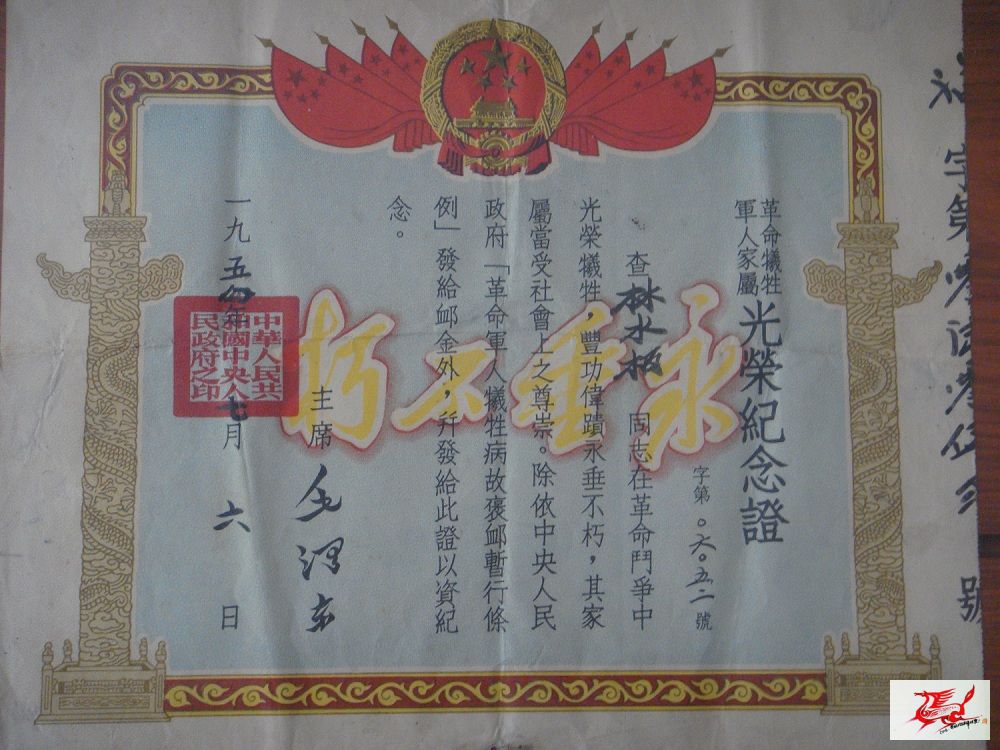 革命犧牲
軍人家屬
光榮紀念證
字第〇六〇五二號
查林水板同志在革命鬥爭中
光榮犧牲，豐功偉蹟永垂不朽，其家
屬當受社會上之尊崇。除依中央人民
政府「革命軍人犧牲病故褒卹暫行條
例」發給卹金外，幷發給此證以資紀
念。
主席 毛澤東
一九五四年七月六日
中華人民共
和國中央人
民政府之印
永垂不朽
字第
號